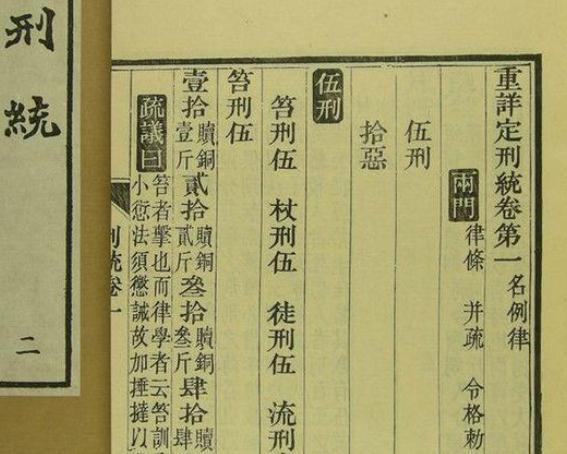 刑統
二
重詳定刑統卷第一 名例律
兩門 律條 并疏 令格勅
伍刑
拾惡
伍刑
笞刑伍 杖刑伍 徒刑伍 流刑
笞刑伍
壹拾贖銅壹斤貳拾贖銅貳斤叄拾贖銅叄斤肆拾贖銅肆
疏議曰笞者擊也而律學者云笞訓
小愆法須懲誡故加捶撻以
刑統卷一